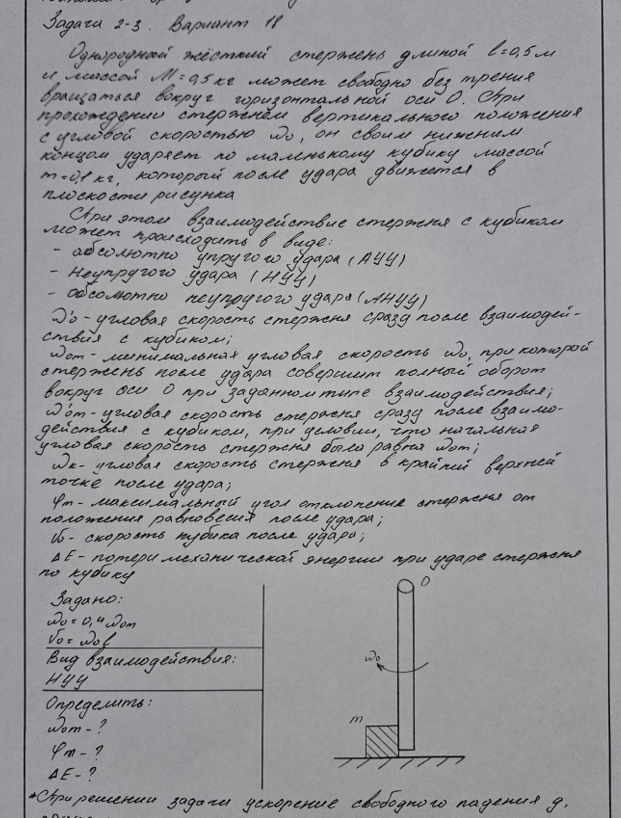 Задача 2-3. Вариант 18
Однородный жёсткий стержень длиной l=0,5 м
и массой M=0,5 кг может свободно без трения
вращаться вокруг горизонтальной оси О. При
прохождении стержнем вертикального положения
с угловой скоростью ω₀, он своим нижним
концом ударяет по маленькому кубику массой
m=0,1 кг, который после удара движется в
плоскости рисунка
При этом взаимодействие стержня с кубиком
может происходить в виде:
- абсолютно упругого удара (АУУ)
- Неупругого удара (НУУ)
- абсолютно неупругого удара (АНУУ)
ω'₀ - угловая скорость стержня сразу после взаимодей-
ствия с кубиком;
ω₀m - минимальная угловая скорость ω₀, при которой
стержень после удара совершит полный оборот
вокруг оси О при заданном типе взаимодействия;
ω'₀m - угловая скорость стержня сразу после взаимо-
действия с кубиком, при условии, что начальная
угловая скорость стержня была равна ω₀m;
ωк - угловая скорость стержня в крайней верхней
точке после удара;
φm - максимальный угол отклонение стержня от
положения равновесия после удара;
v₀ - скорость кубика после удара;
ΔE - потери механической энергии при ударе стержня
по кубику
Задано:
ω₀ = 0,4 ω₀m
v₀ = ω₀l
Вид взаимодействия:
НУУ
Определить:
ω₀m - ?
φm - ?
ΔE - ?
O
ω₀
m
*При решении задачи ускорение свободного падения g,